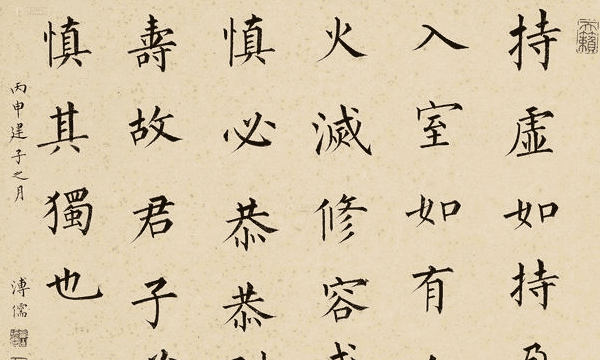 持虛如持
入室如有
火滅修容
慎必恭恭
壽故君子
慎其獨也
丙申建子之月
溥儒